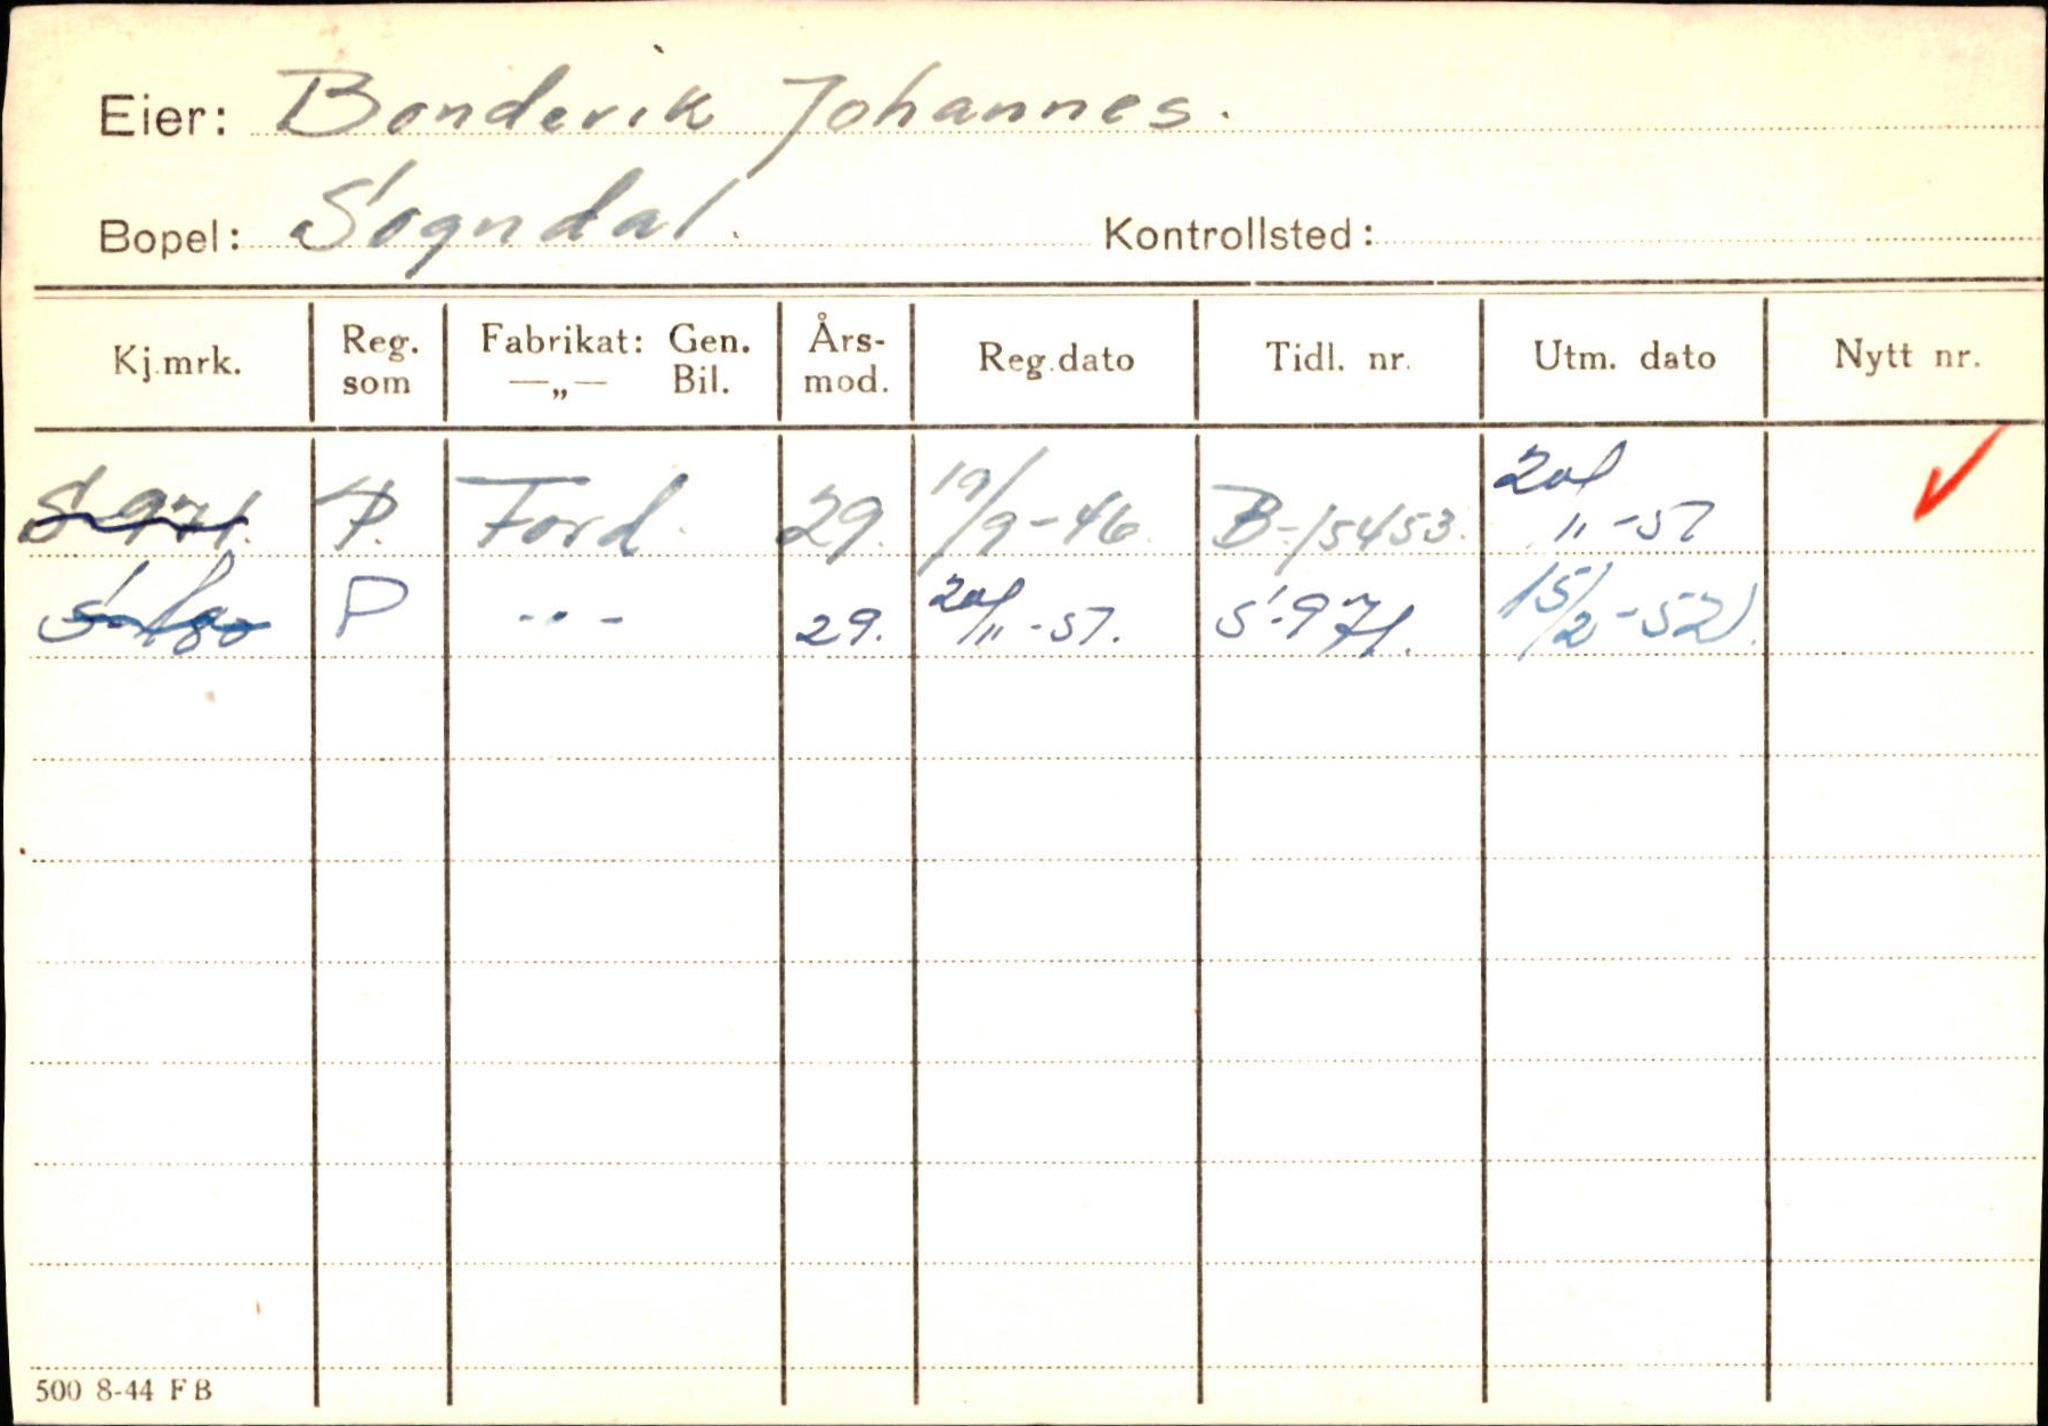 Eier: Bondevik Johannes.
Bopel: Sogndal. Kontrollsted:
Kj.mrk. Reg. som Fabrikat: Gen. —„— Bil. Års-mod. Reg.dato Tidl. nr. Utm. dato Nytt nr.
S-971. P. Ford. 29. 19/9-46. B-15453. 20/11-51
S-180 P -..- 29. 20/11-51. S-971. 15/2-52.
500 8-44 FB